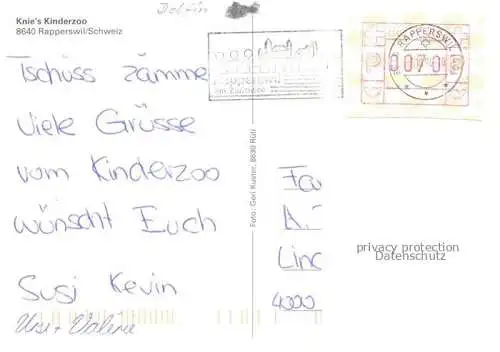 Delfin
Knie's Kinderzoo
8640 Rapperswil/Schweiz
Tschüss zämme
Viele Grüsse
vom Kinderzoo
wünscht Euch
Susi Kevin
Ursi + Valerie
Foto: Geri Kuster, 8630 Rüti
RAPPERSWIL
0070
Fa
A.
Linc
4000
privacy protection
Datenschutz